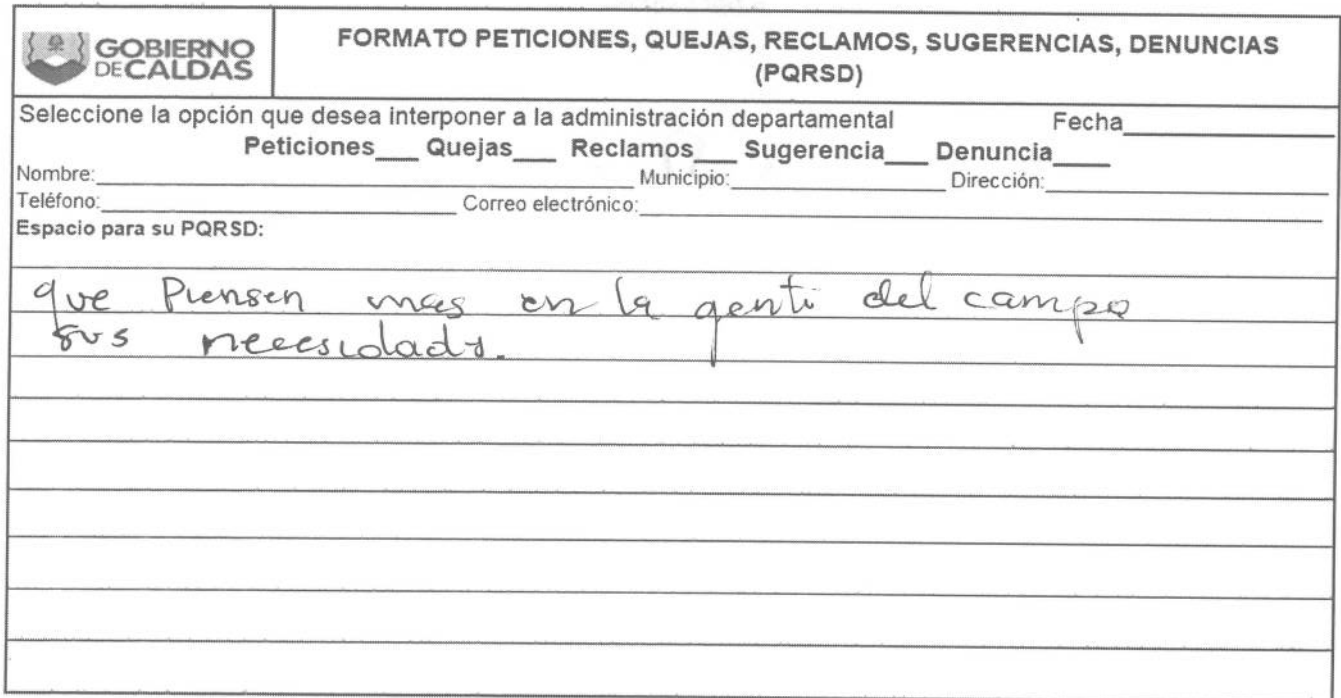 GOBIERNO
DE CALDAS
FORMATO PETICIONES, QUEJAS, RECLAMOS, SUGERENCIAS, DENUNCIAS
(PQRSD)
Seleccione la opción que desea interponer a la administración departamental Fecha____
Peticiones___ Quejas___ Reclamos___ Sugerencia___ Denuncia____
Nombre:____ Municipio:____ Dirección:____
Teléfono:____ Correo electrónico:____
Espacio para su PQRSD:
que Piensen mas en la gente del campo
sus necesidades.